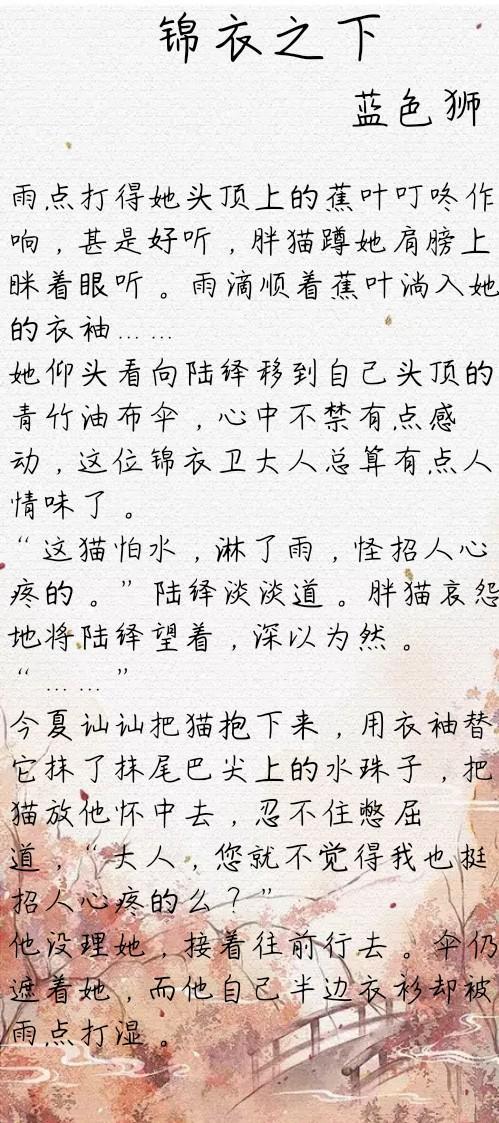 锦衣之下
蓝色狮
雨点打得她头顶上的蕉叶叮咚作
响，甚是好听，胖猫蹲她肩膀上
眯着眼听。雨滴顺着蕉叶淌入她
的衣袖……
她仰头看向陆绎移到自己头顶的
青竹油布伞，心中不禁有点感
动，这位锦衣卫大人总算有点人
情味了。
“这猫怕水，淋了雨，怪招人心
疼的。”陆绎淡淡道。胖猫哀怨
地将陆绎望着，深以为然。
“……”
今夏讪讪把猫抱下来，用衣袖替
它抹了抹尾巴尖上的水珠子，把
猫放他怀中去，忍不住憋屈
道，“大人，您就不觉得我也挺
招人心疼的么？”
他没理她，接着往前行去。伞仍
遮着她，而他自己半边衣衫却被
雨点打湿。